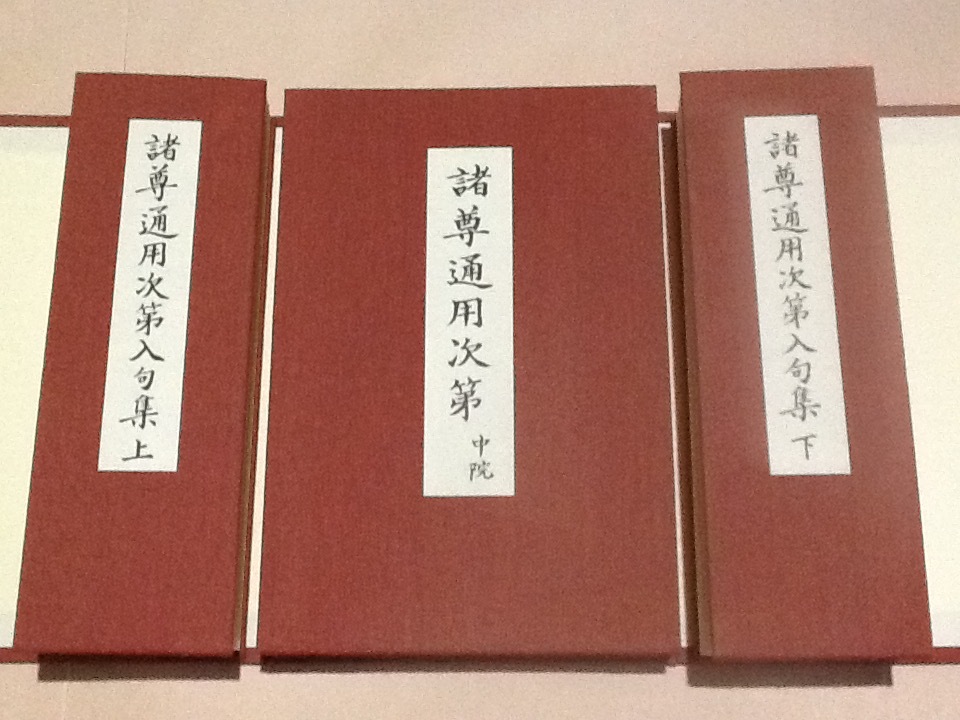 諸尊通用次第入句集 上
諸尊通用次第
中院
諸尊通用次第入句集 下